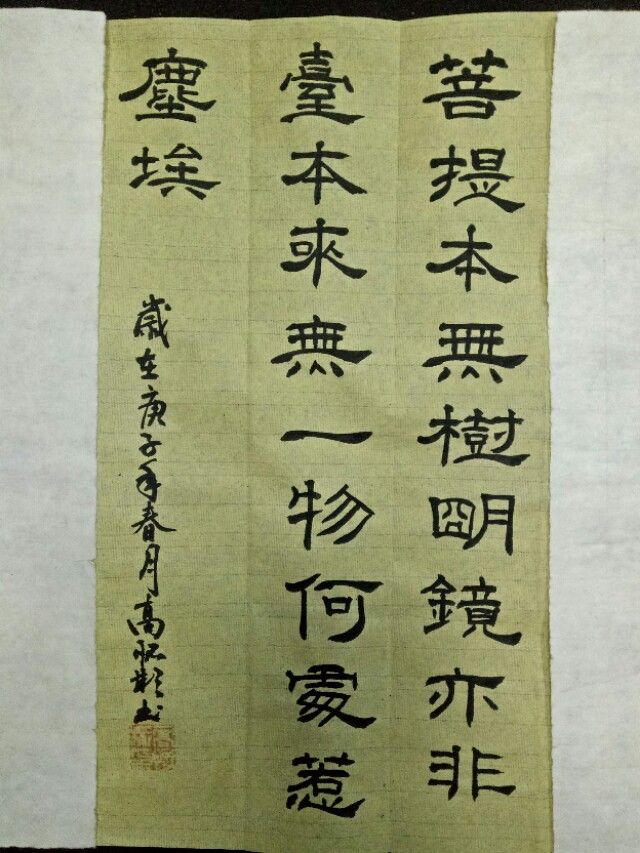 菩提本無樹明鏡亦非
臺本來無一物何處惹
塵埃
歲在庚子年春月高書